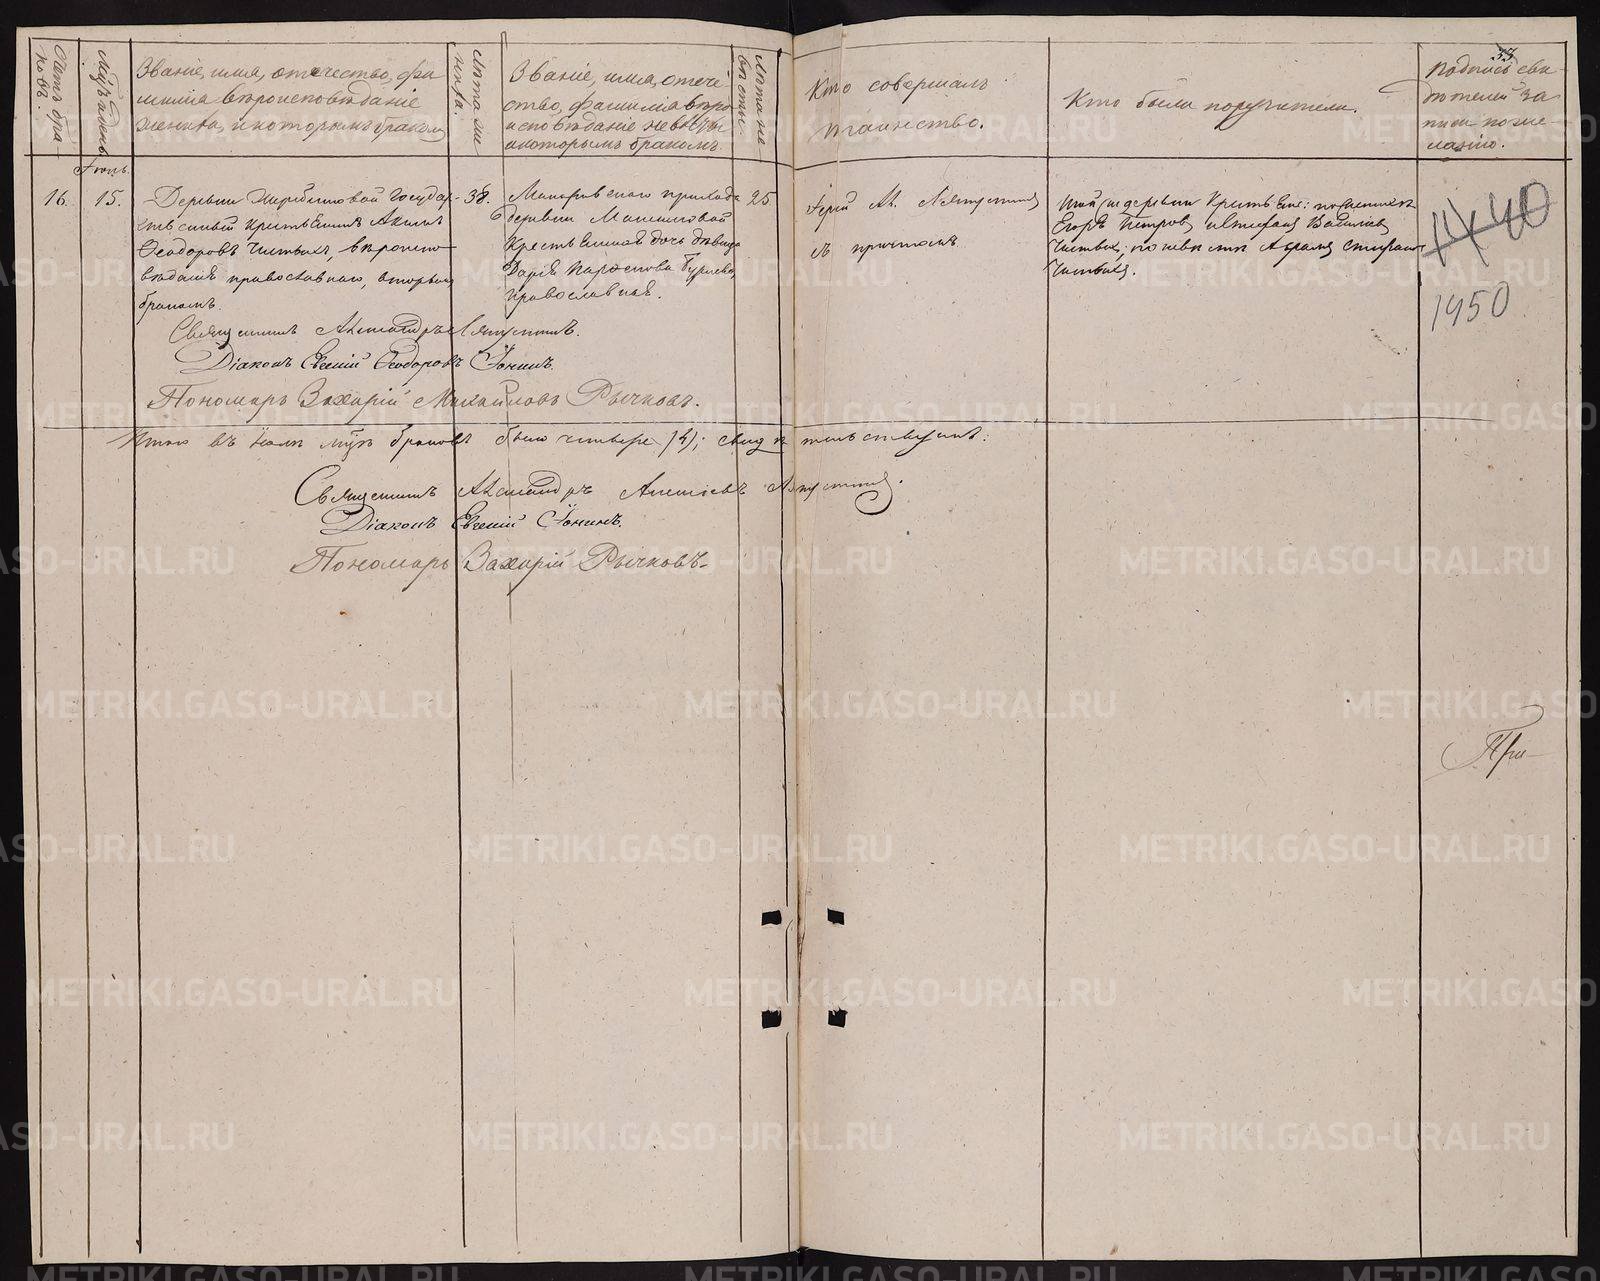 Счетъ бра
ковъ.
Мѣс. и день
Званіе, имя, отчество, фа
милія вѣроисповѣданіе
жениха, и которымъ бракомъ
Лѣта же
ниха.
Званіе, имя, отче
ство, фамилія вѣро
исповѣданіе невѣсты
и которымъ бракомъ.
Лѣта не
вѣсты.
Кто совершалъ
таинство.
Кто были поручители.
33
Подпись сви-
дѣтелей за
писи по же-
ланію.
16. 15.
Деревни Государ-
ственный крестьянинъ
Ѳеодоровъ Чистыхъ, вѣроиспо
вѣданія православнаго, вторымъ
бракомъ.
38.
Макаровскаго прихода
деревни
крестьянская дочь дѣвица
Дарья
православная.
25
Іерей Ал.
съ причтомъ
Той же деревни крестьяне: по женихѣ
Егоръ Петровъ и Василіевъ
Чистыхъ; по невѣстѣ
Чистыхъ.
40
1950
Священникъ Александръ
Діаконъ Евгеній Ѳеодоровъ Іонинъ.
Пономарь Захарій Михайловъ Рычковъ.
Итого въ Іюнѣ мѣс. браковъ было четыре (4); свидѣтельствуемъ:
Священникъ Александръ Алексіевъ
Діаконъ Евгеній Іонинъ.
Пономарь Захарій Рычковъ.
При-
METRIKI.GASO-URAL.RU